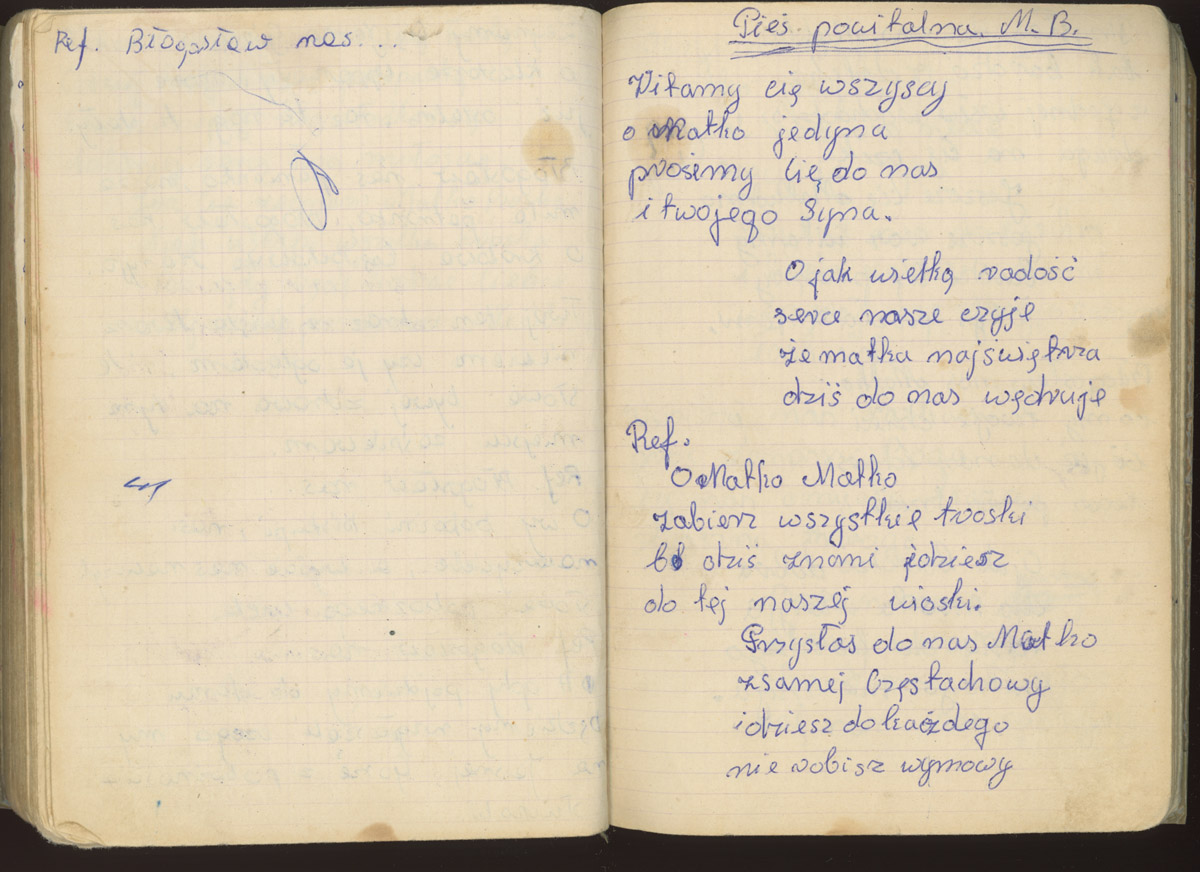 Ref. Błogosław nas...
Pieś powitalna M.B.
Witamy cię wszyscy
o Matko jedyna
prosimy Cię do nas
i twojego Syna.
O jak wielką radość
serce nasze czyje
że matka najświętrza
dziś do nas wędruję
Ref.
O Matko Matko
zabierz wszystkie troski
bo dziś znami jdziesz
do tej naszej wioski.
Przysłas do nas Matko
zsamej Częstachowy
idziesz do każdego
nie robisz wymowy